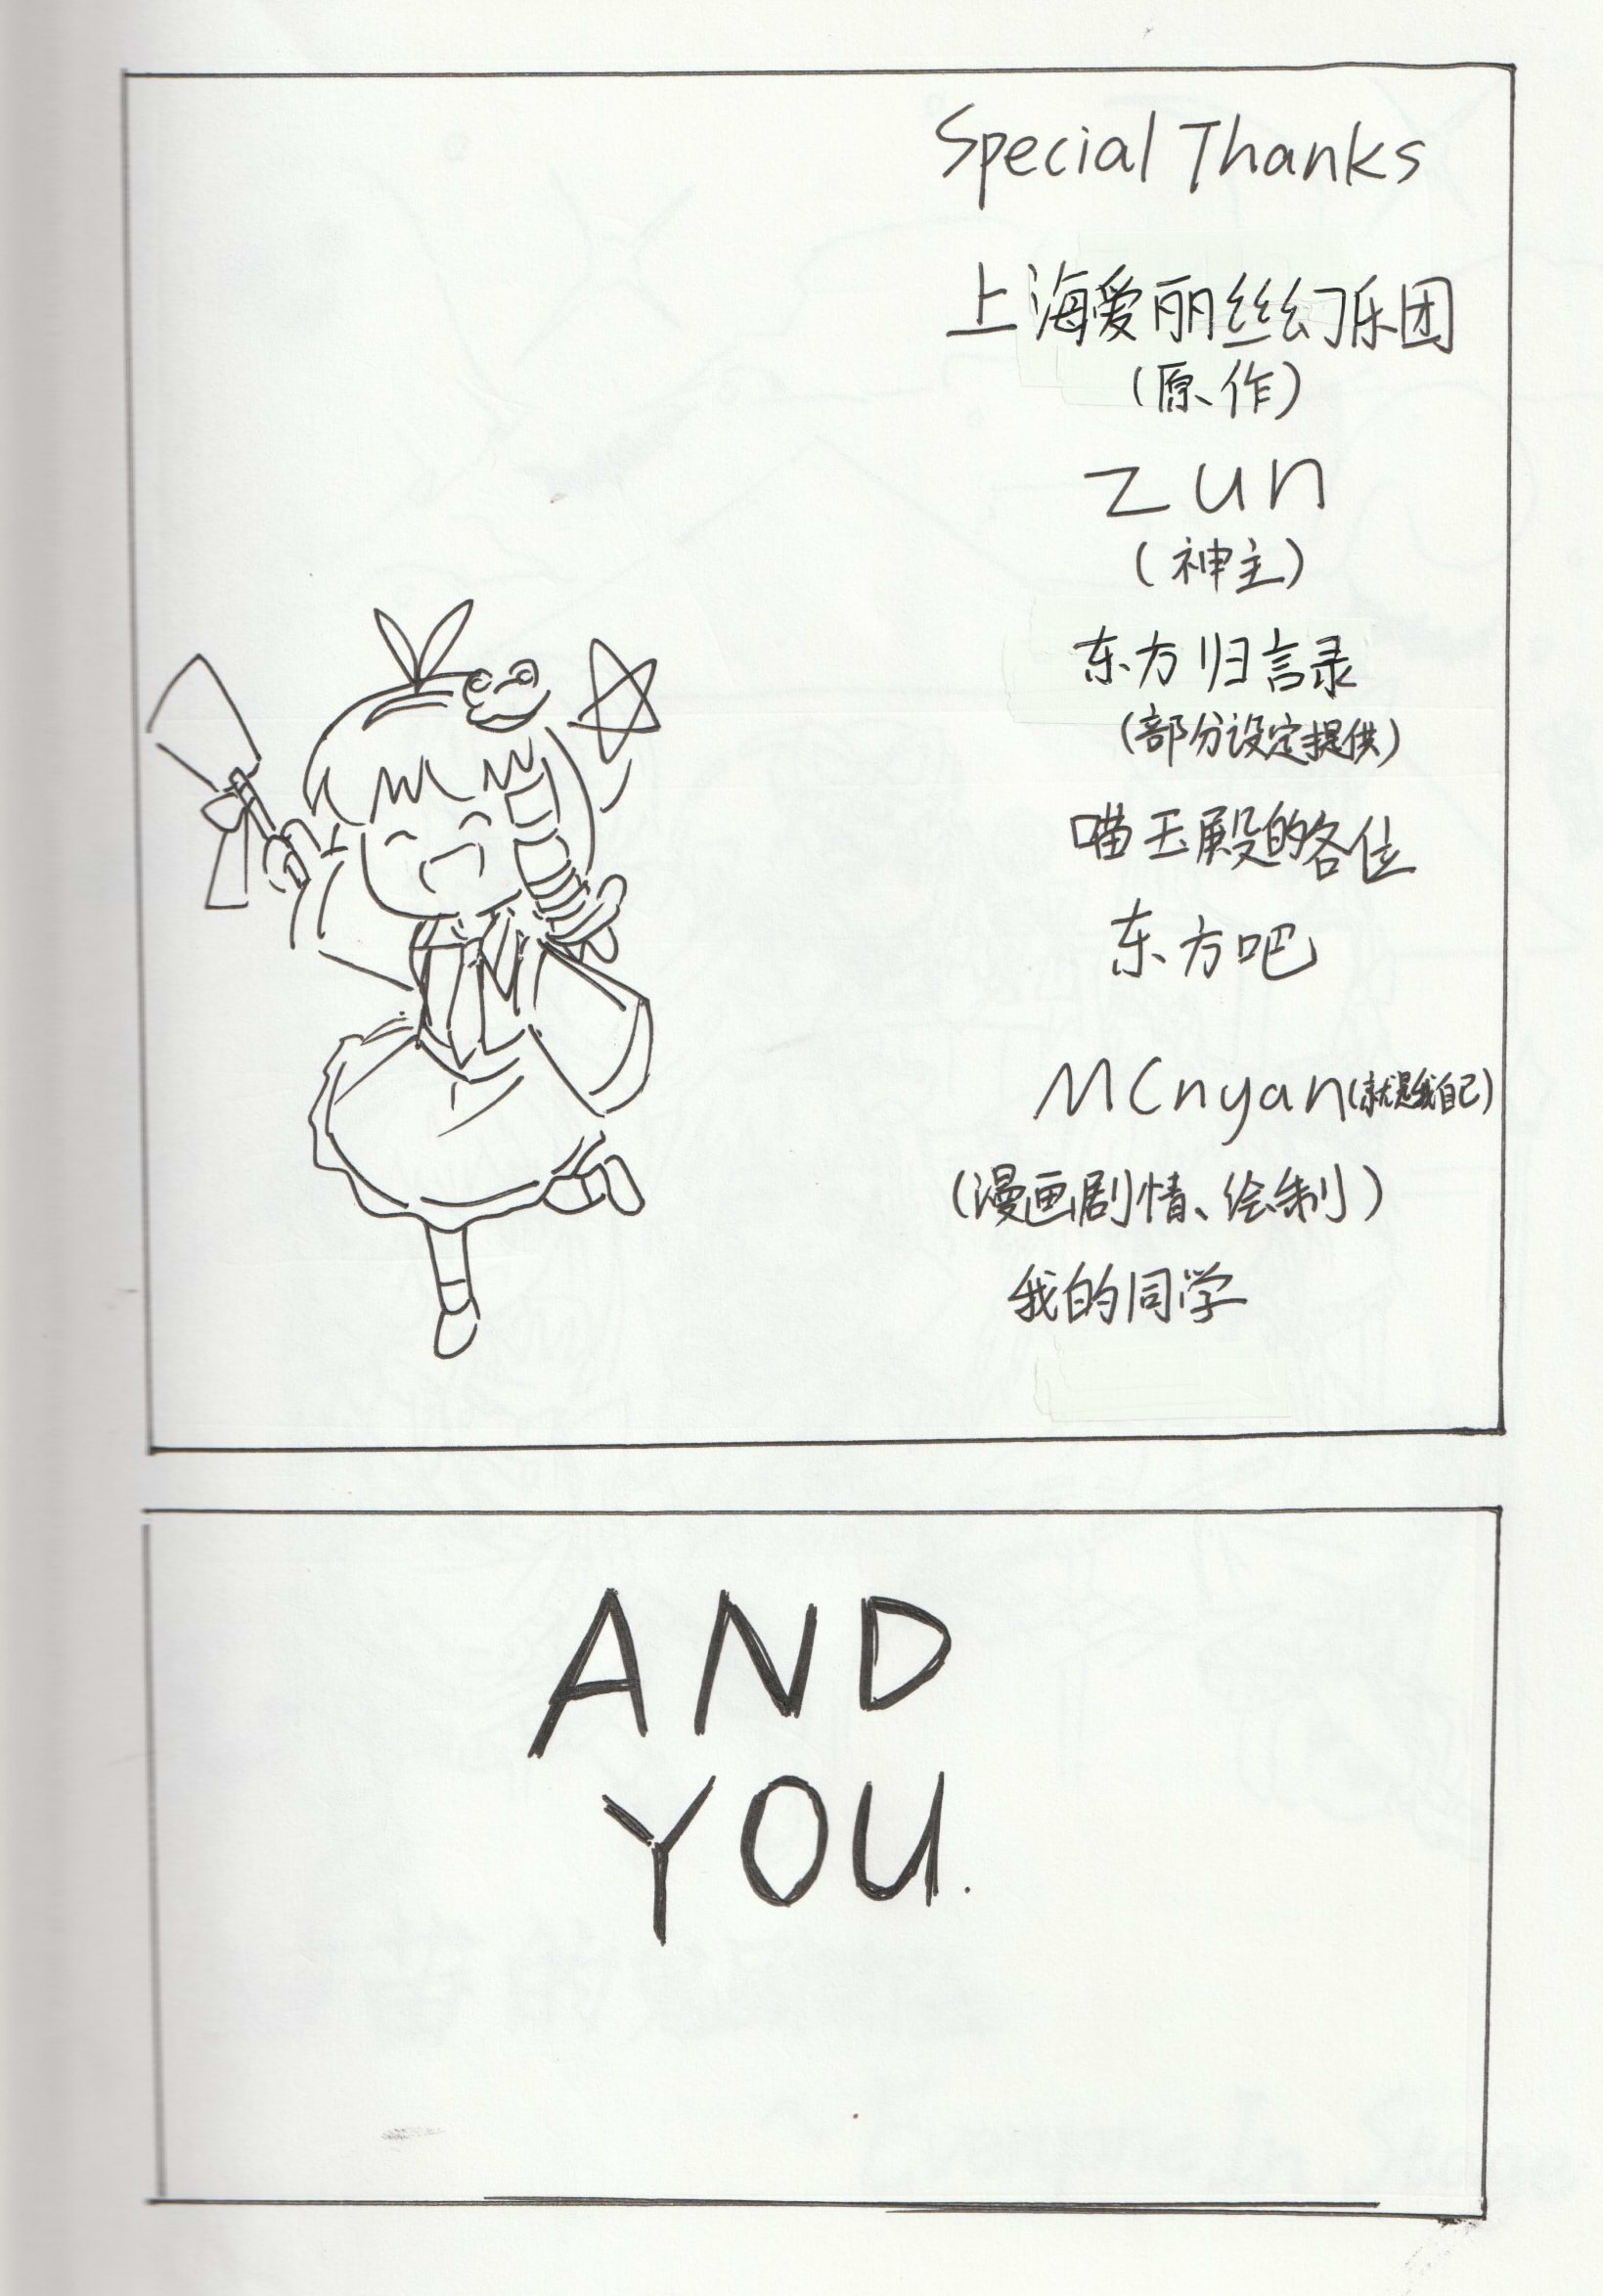 Special Thanks
上海爱丽丝幻乐团
(原作)
ZUN
(神主)
东方归言录
(部分设定提供)
喵玉殿的各位
东方吧
MCnyan(就是我自己)
(漫画剧情、绘制)
我的同学
AND
YOU.